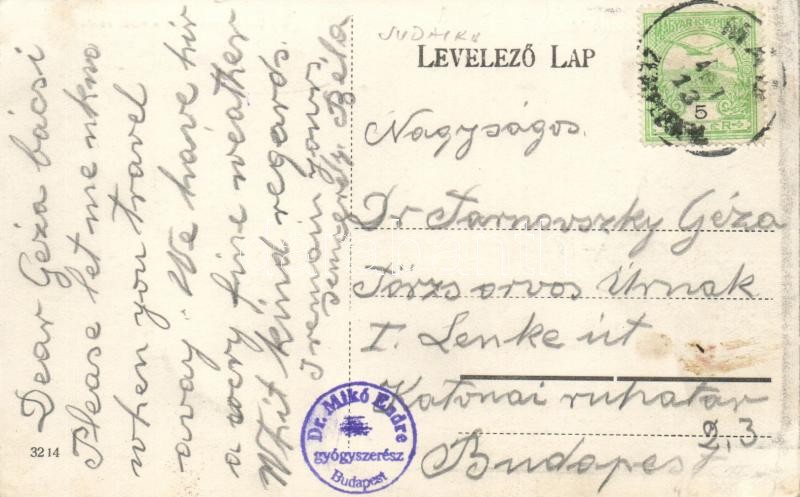 JUDAIKA
LEVELEZŐ LAP
MAGYAR KIR. POSTA
5
Dear Géza bácsi
Please let me ukno
when you travel
avay. We have hir
a very fine weather
Whit kind regards.
I remain yours
Béla
Nagyságos
Dr Tarnovszky Géza
Törzsorvos Úrnak
I. Lenke út
Katonai ruhatár
2,3
Budapest
Dr. Mikó Endre
gyógyszerész
Budapest
3214